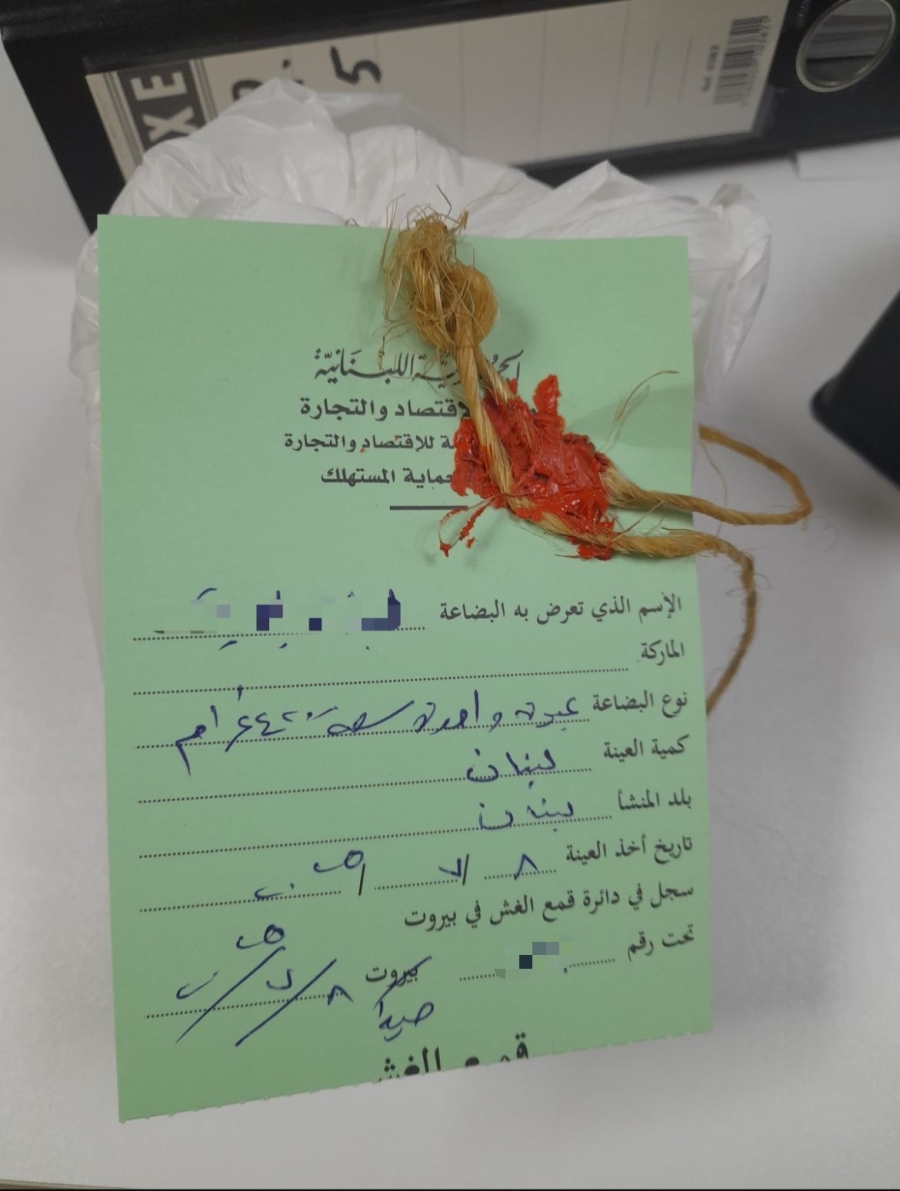 XE
5
الجمهوريّة اللبنانيّة
الاقتصاد والتجارة
للإقتصاد والتجارة
حماية المستهلك
الإسم الذي تعرض به البضاعة
الماركة
نوع البضاعة عبوة واحدة سعة
كمية العينة لبنان
بلد المنشأ لبنان
تاريخ أخذ العينة ٨ / ٧ /
سجل في دائرة قمع الغش في بيروت
تحت رقم بيروت ٨ / ٧ /
صيدا
قمع الغش